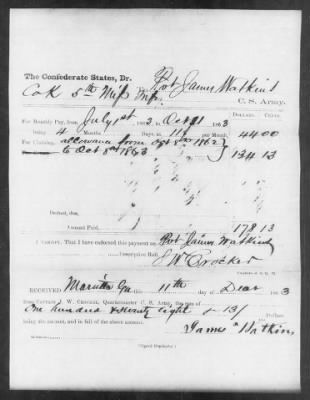 The Confederate States, Dr.
To Pvt James Watkins
Co K 5th Miss Inf.
C. S. Army.
DOLLARS. CENTS.
For Monthly Pay, from July 1st 2, to Oct 31 3
being 4 Months Days, at 11 per Month, 44 00
For Clothing, allowance from Oct 8th 1862
to Oct 8th 1863 134 13
Deduct, due,
Amount Paid, 178 13
I CERTIFY, That I have endorsed this payment on Pvt James Watkins
Descriptive Roll.
J W Crocker
RECEIVED Marietta Ga this 11th day of Decr 3
from Captain J. W. CROCKER, Quartermaster C. S. Army, the sum of
One hundred & seventy eight & 13/ Dollars
being the amount, and in full of the above account.
James Watkins
(Signed Duplicate.)